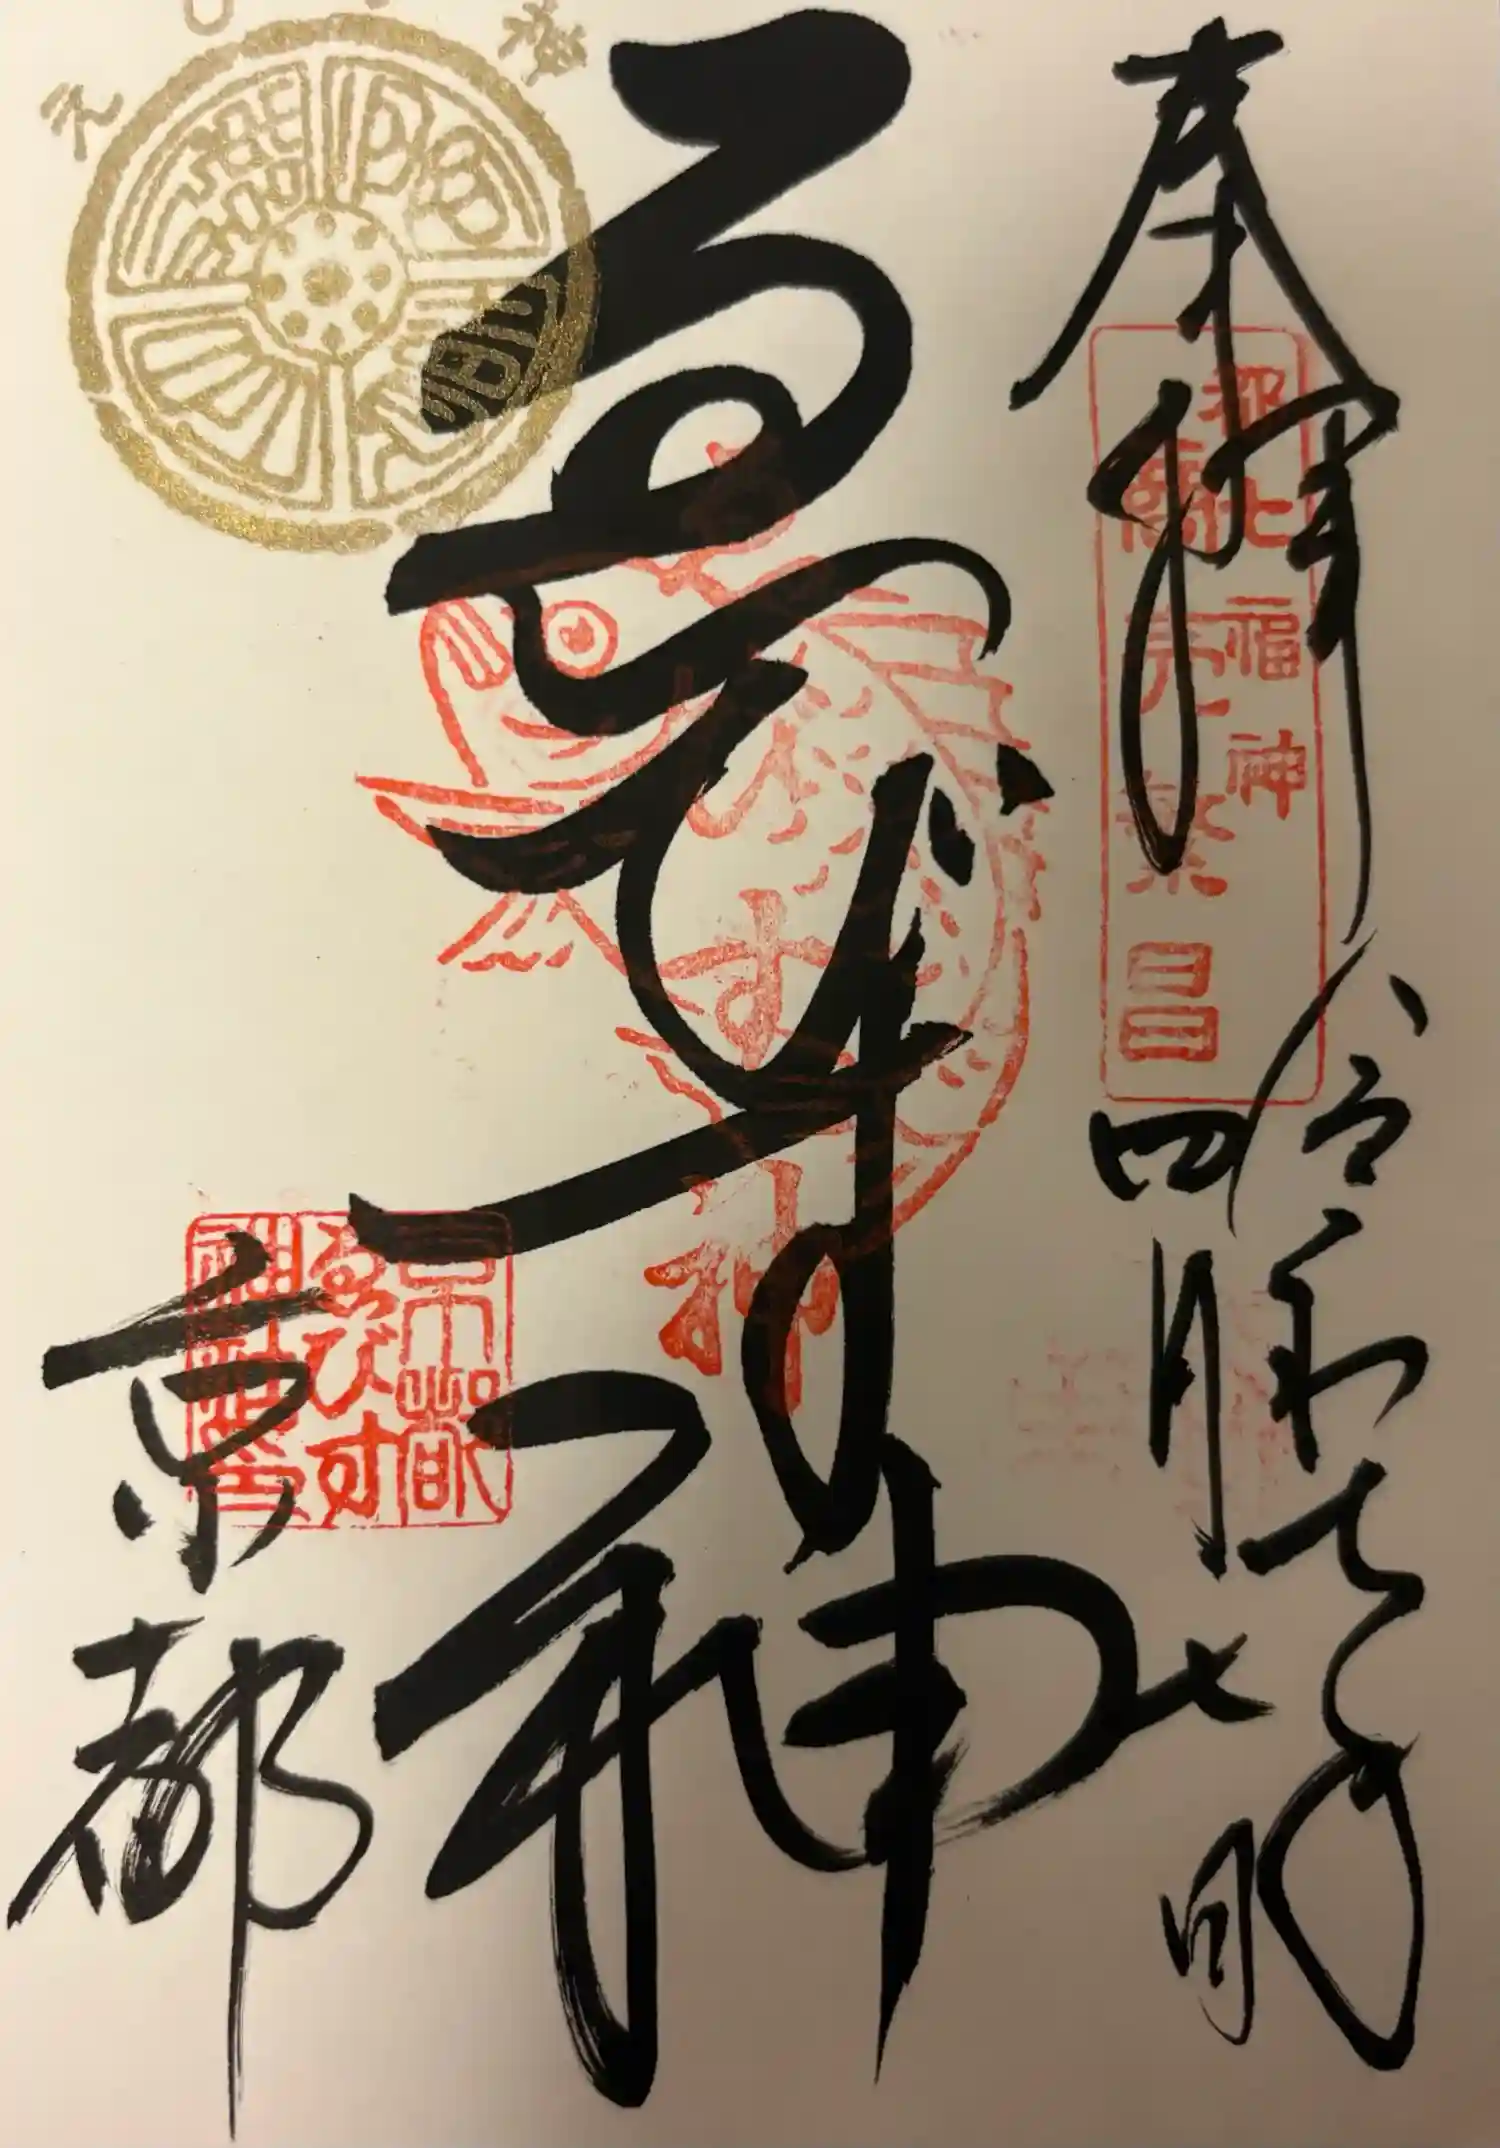 奉拝
都七福神
商売繁昌
令和七年
四月七日
ゑびす神
ゑびす神
京都
京都
ゑびす
神社印